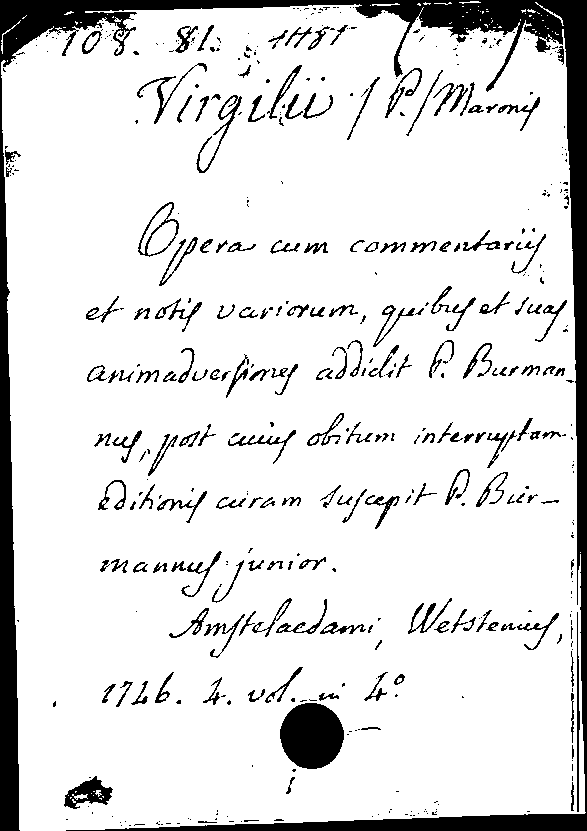 108. 81.
Virgilii /P./ Maronis
Opera cum commentariis
et notis variorum, quibus et suas
animadversiones addidit P. Burman-
nus, post cuius obitum interruptam
editionis curam suscepit P. Bur-
mannus junior.
Amstelaedami, Wetstenius,
1746. 4. vol. in 4°